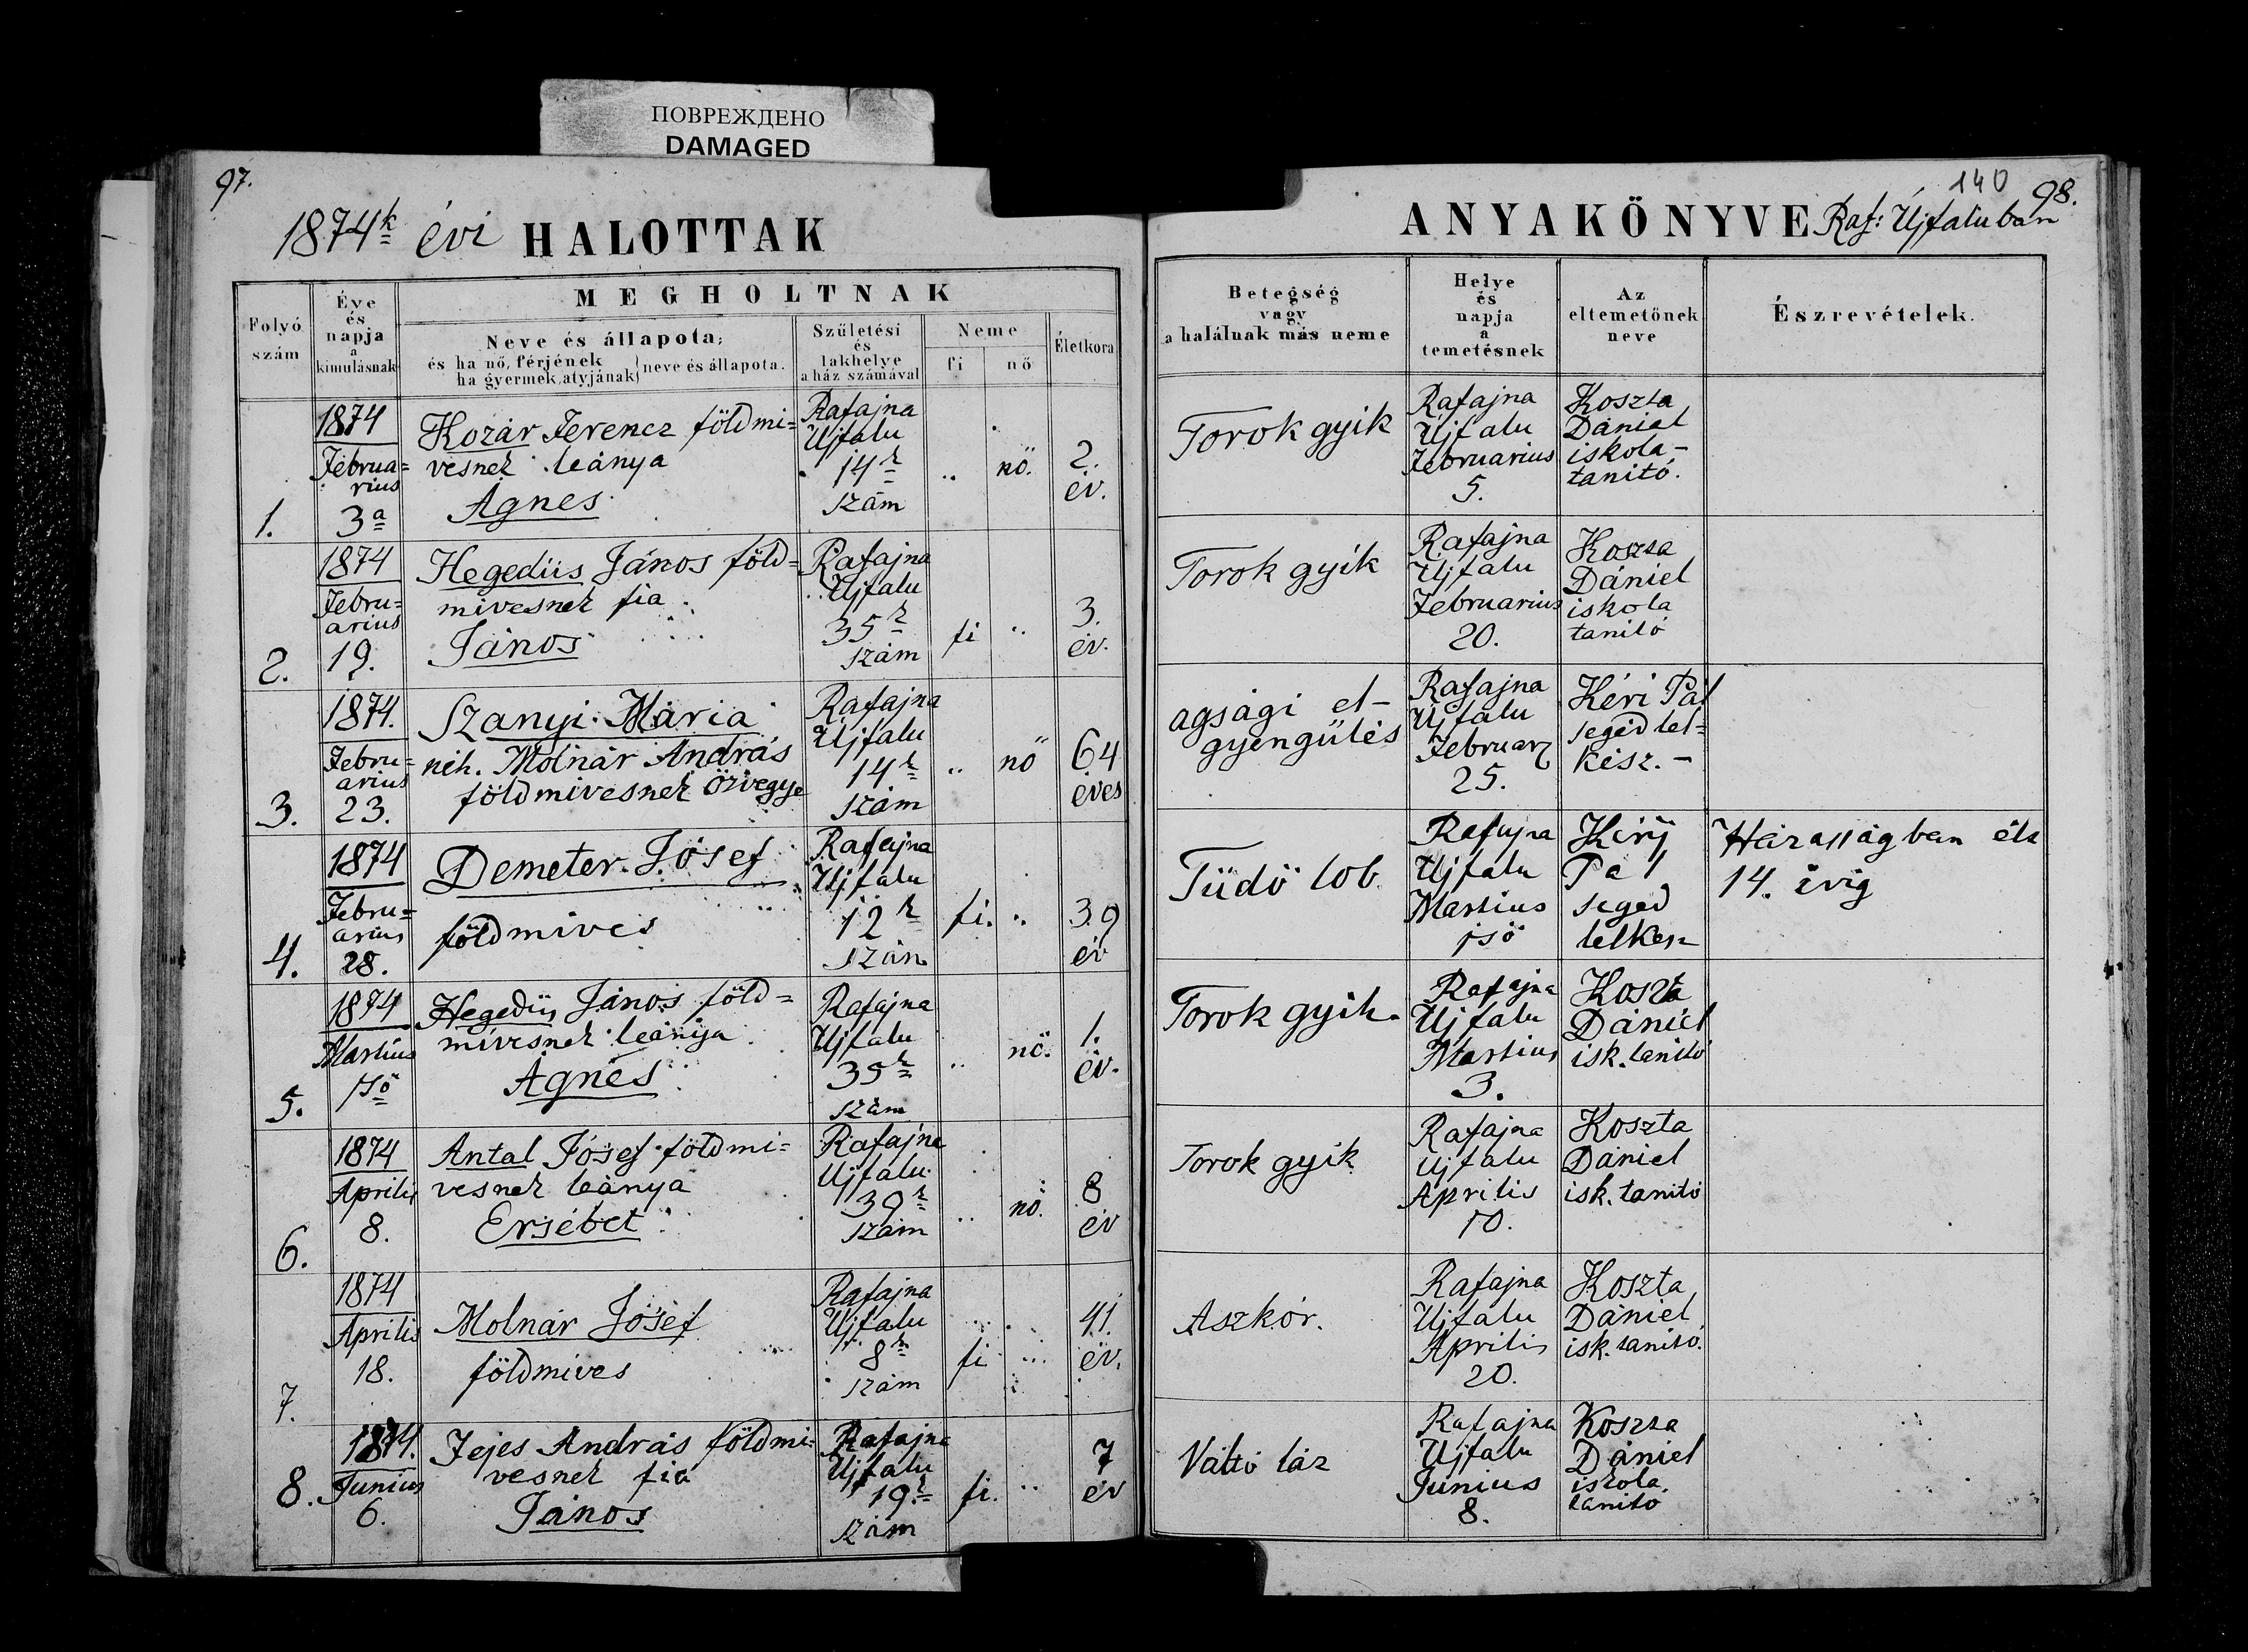 ПОВРЕЖДЕНО
DAMAGED
97.
1874k évi HALOTTAK
MEGHOLTNAK
Folyó szám
Éve és napja a kimulásnak
Neve és állapota;
és ha nő, férjének
ha gyermek, atyjának
neve és állapota.
Születési és lakhelye a ház számával
Neme
fi
nő
Életkora
1.
1874
Februa=
rius
3a
Kozár Ferencz földmi=
vesnek leánya
Ágnes
Rafajna
Ujfalu
14k
szám
..
nő.
2.
év.
2.
1874
Febru=
arius
19.
Hegedüs János föld=
mivesnek fia
János
Rafajna
Ujfalu
35k
szám
fi
..
3.
év.
3.
1874.
Febru=
arius
23.
Szanyi Mária
néh. Molnár András
földmivesnek özvegye
Rafajna
Ujfalu
14k
szám
..
nő
64
éves
4.
1874
Febru=
arius
28.
Demeter Jósef
földmives
Rafajna
Ujfalu
12k
szám
fi.
..
39
év
5.
1874
Martius
1ső
Hegedüs János föld=
mivesnek leánya
Ágnes
Rafajna
Ujfalu
35k
szám
..
nő.
1.
év.
6.
1874
Aprilis
8.
Antal Jósef földmi=
vesnek leánya
Ersébet
Rafajna
Ujfalu
39k
szám
..
nő.
8
év
7.
1874
Aprilis
18.
Molnár Jósef
földmives
Rafajna
Ujfalu
8k
szám
fi
...
41.
év.
8.
1874.
Junius
6.
Fejes András földmi=
vesnek fia
János
Rafajna
Ujfalu
19.k
szám
fi.
..
7
év
140
98.
ANYAKÖNYVE Raf: Újfaluban
Betegség
vagy
a halálnak más neme
Helye
és
napja
a
temetésnek
Az
eltemetőnek
neve
Észrevételek.
Torok gyik
Rafajna
Ujfalu
Februarius
5.
Koszta
Dániel
iskola-
tanitó.
Torok gyik
Rafajna
Ujfalu
Februarius
20.
Koszta
Dániel
iskola
tanitó
agsági el-
gyengülés
Rafajna
Ujfalu
Februar
25.
Kéri Pál
segéd lel=
kész.-
Tüdő lob.
Rafajna
Ujfalu
Martius
1ső
Kérij
Pál
seged
lelkesz
Házasságban élt
14. évig
Torok gyik.
Rafajna
Ujfalu
Martius
3.
Koszta
Dániel
isk. tanitó
Torok gyik
Rafajna
Ujfalu
Aprilis
10.
Koszta
Dániel
isk. tanitó
Aszkór.
Rafajna
Ujfalu
Aprilis
20.
Koszta
Dániel
isk. tanitó.
Váltó láz
Rafajna
Ujfalu
Junius
8.
Koszta
Dániel
iskola
tanitó